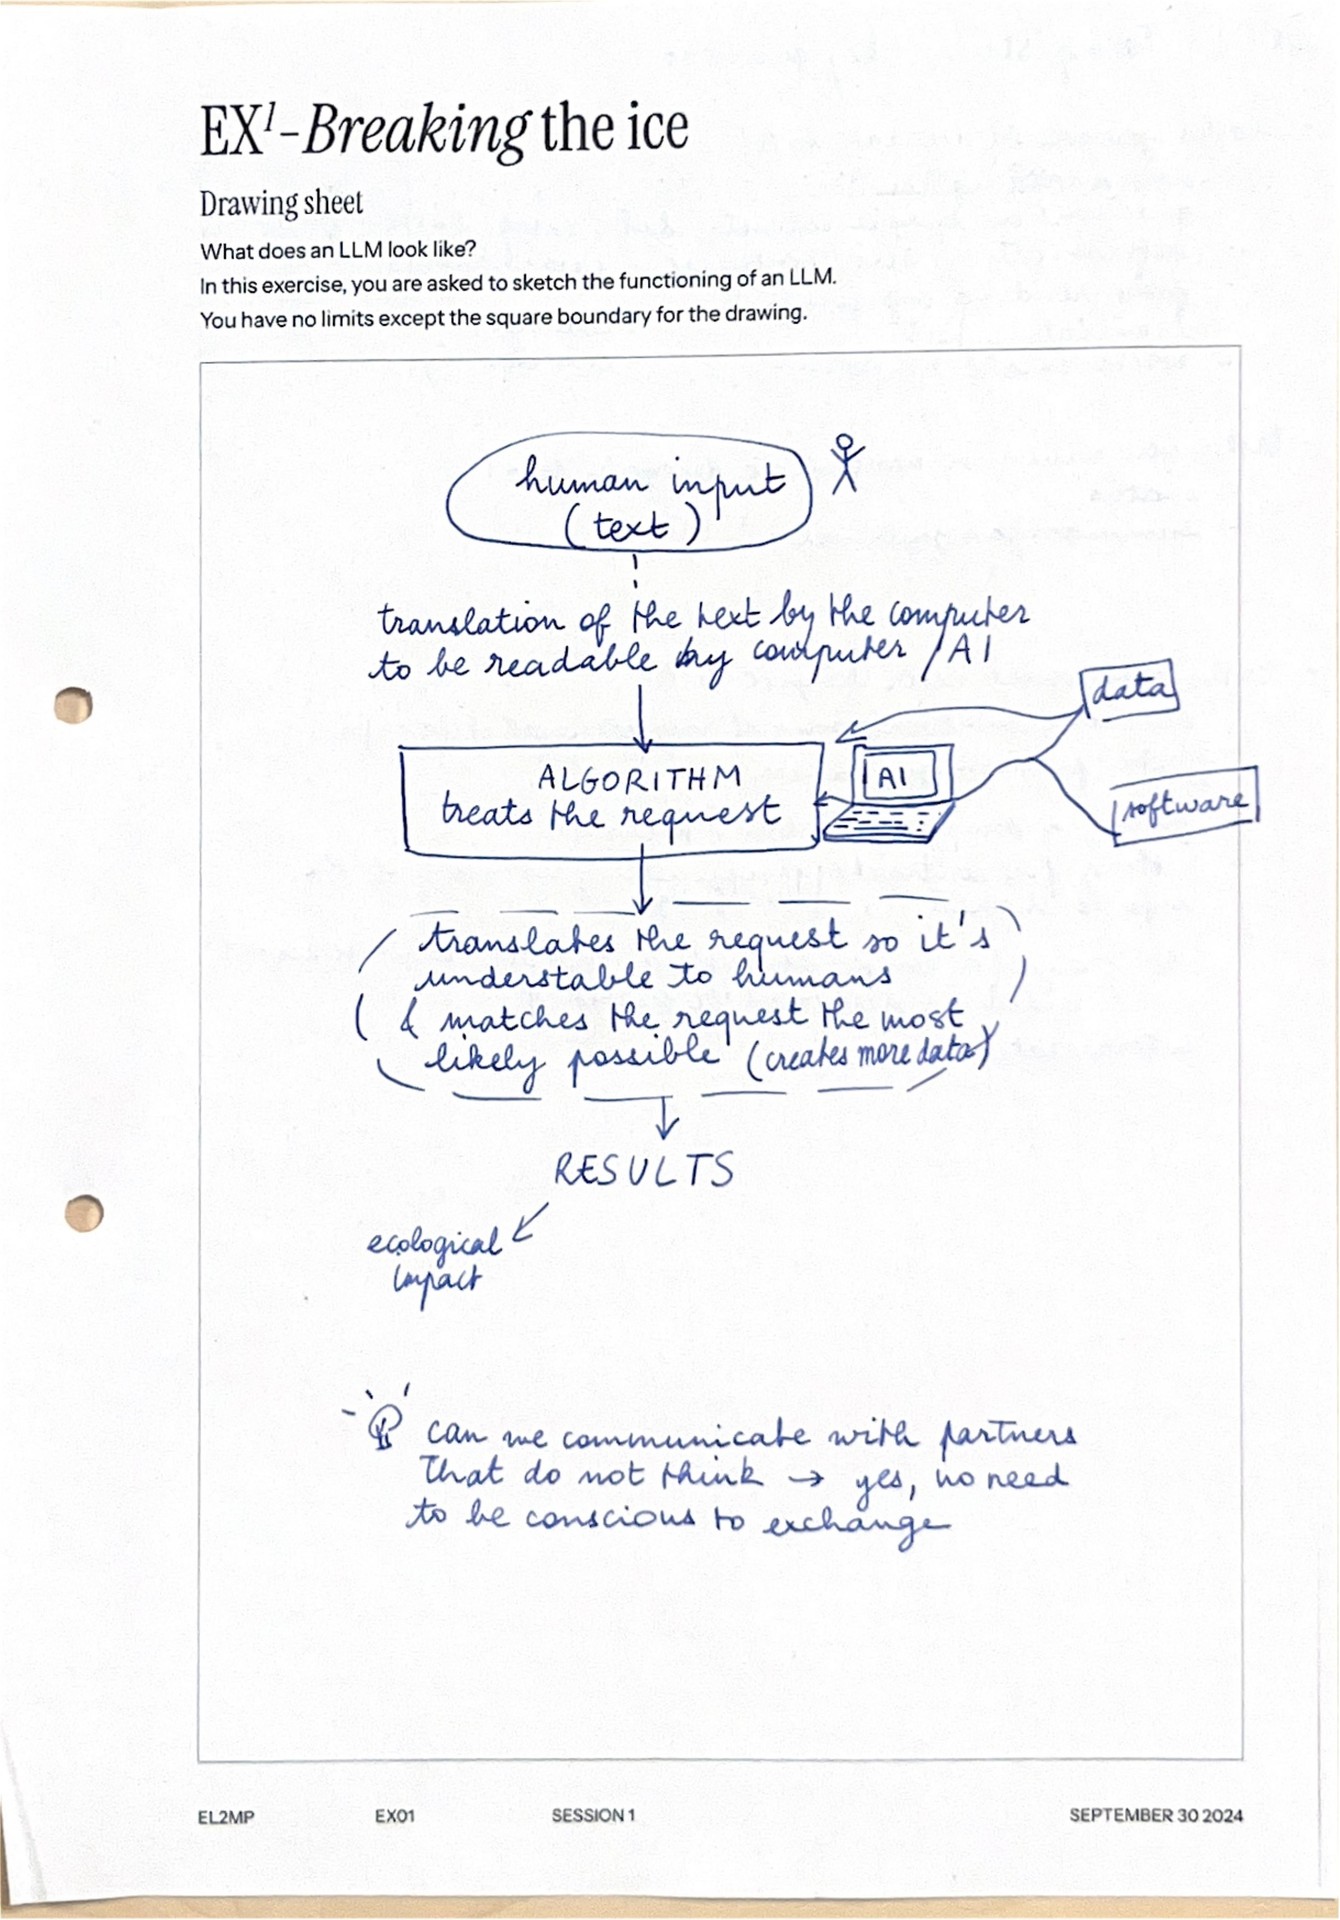 EX¹-Breaking the ice
Drawing sheet
What does an LLM look like?
In this exercise, you are asked to sketch the functioning of an LLM.
You have no limits except the square boundary for the drawing.
human input
(text)
translation of the text by the computer
to be readable by computer / AI
data
ALGORITHM
treats the request
AI
software
translates the request so it's
understable to humans
& matches the request the most
likely possible (creates more data)
RESULTS
ecological
impact
can we communicate with partners
that do not think → yes, no need
to be conscious to exchange
EL2MP EX01 SESSION 1 SEPTEMBER 30 2024